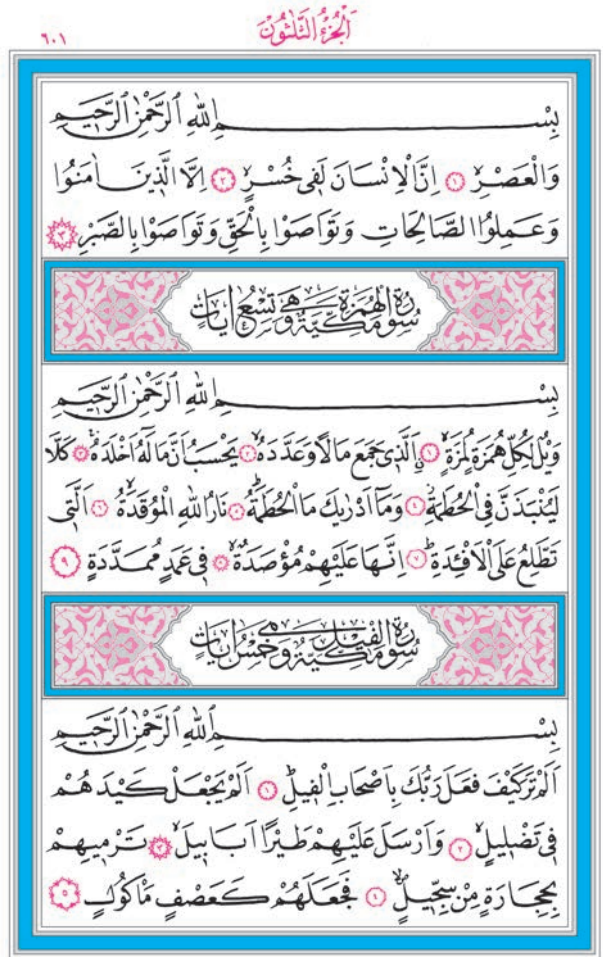 ٦٠١
اَلْجُزْءُ الثَّلٰثُونَ
بِسْمِ اللّٰهِ الرَّحْمٰنِ الرَّح۪يمِ
وَالْعَصْرِۙ ١ اِنَّ الْاِنْسَانَ لَف۪ي خُسْرٍۙ ٢ اِلَّا الَّذ۪ينَ اٰمَنُوا
وَعَمِلُوا الصَّالِحَاتِ وَتَوَاصَوْا بِالْحَقِّ وَتَوَاصَوْا بِالصَّبْرِ ٣
سُورَةُ الْهُمَزَةِ مَكِّيَّةٌ وَهِيَ تِسْعُ اٰيَاتٍ
بِسْمِ اللّٰهِ الرَّحْمٰنِ الرَّح۪يمِ
وَيْلٌ لِكُلِّ هُمَزَةٍ لُمَزَةٍۙ ١ اَۨلَّذ۪ي جَمَعَ مَالًا وَعَدَّدَهُۙ ٢ يَحْسَبُ اَنَّ مَالَهُٓ اَخْلَدَهُۚ ٣ كَلَّا
لَيُنْبَذَنَّ فِي الْحُطَمَةِۘ ٤ وَمَٓا اَدْرٰيكَ مَا الْحُطَمَةُۜ ٥ نَارُ اللّٰهِ الْمُوقَدَةُۙ ٦ اَلَّت۪ي
تَطَّلِعُ عَلَى الْاَفْـِٔدَةِۜ ٧ اِنَّهَا عَلَيْهِمْ مُؤْصَدَةٌۙ ٨ ف۪ي عَمَدٍ مُمَدَّدَةٍ ٩
سُورَةُ الْف۪يلِ مَكِّيَّةٌ وَهِيَ خَمْسُ اٰيَاتٍ
بِسْمِ اللّٰهِ الرَّحْمٰنِ الرَّح۪يمِ
اَلَمْ تَرَ كَيْفَ فَعَلَ رَبُّكَ بِاَصْحَابِ الْف۪يلِۜ ١ اَلَمْ يَجْعَلْ كَيْدَهُمْ
ف۪ي تَضْل۪يلٍۙ ٢ وَاَرْسَلَ عَلَيْهِمْ طَيْرًا اَبَاب۪يلَۙ ٣ تَرْم۪يهِمْ
بِحِجَارَةٍ مِنْ سِجّ۪يلٍۙ ٤ فَجَعَلَهُمْ كَعَصْفٍ مَأْكُولٍ ٥